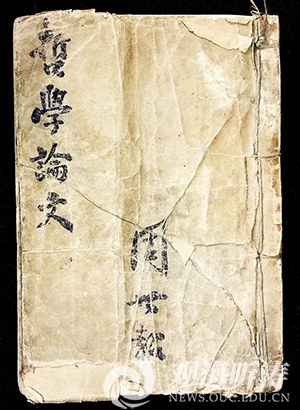 哲學論文
周
观海听涛
NEWS.OUC.EDU.CN